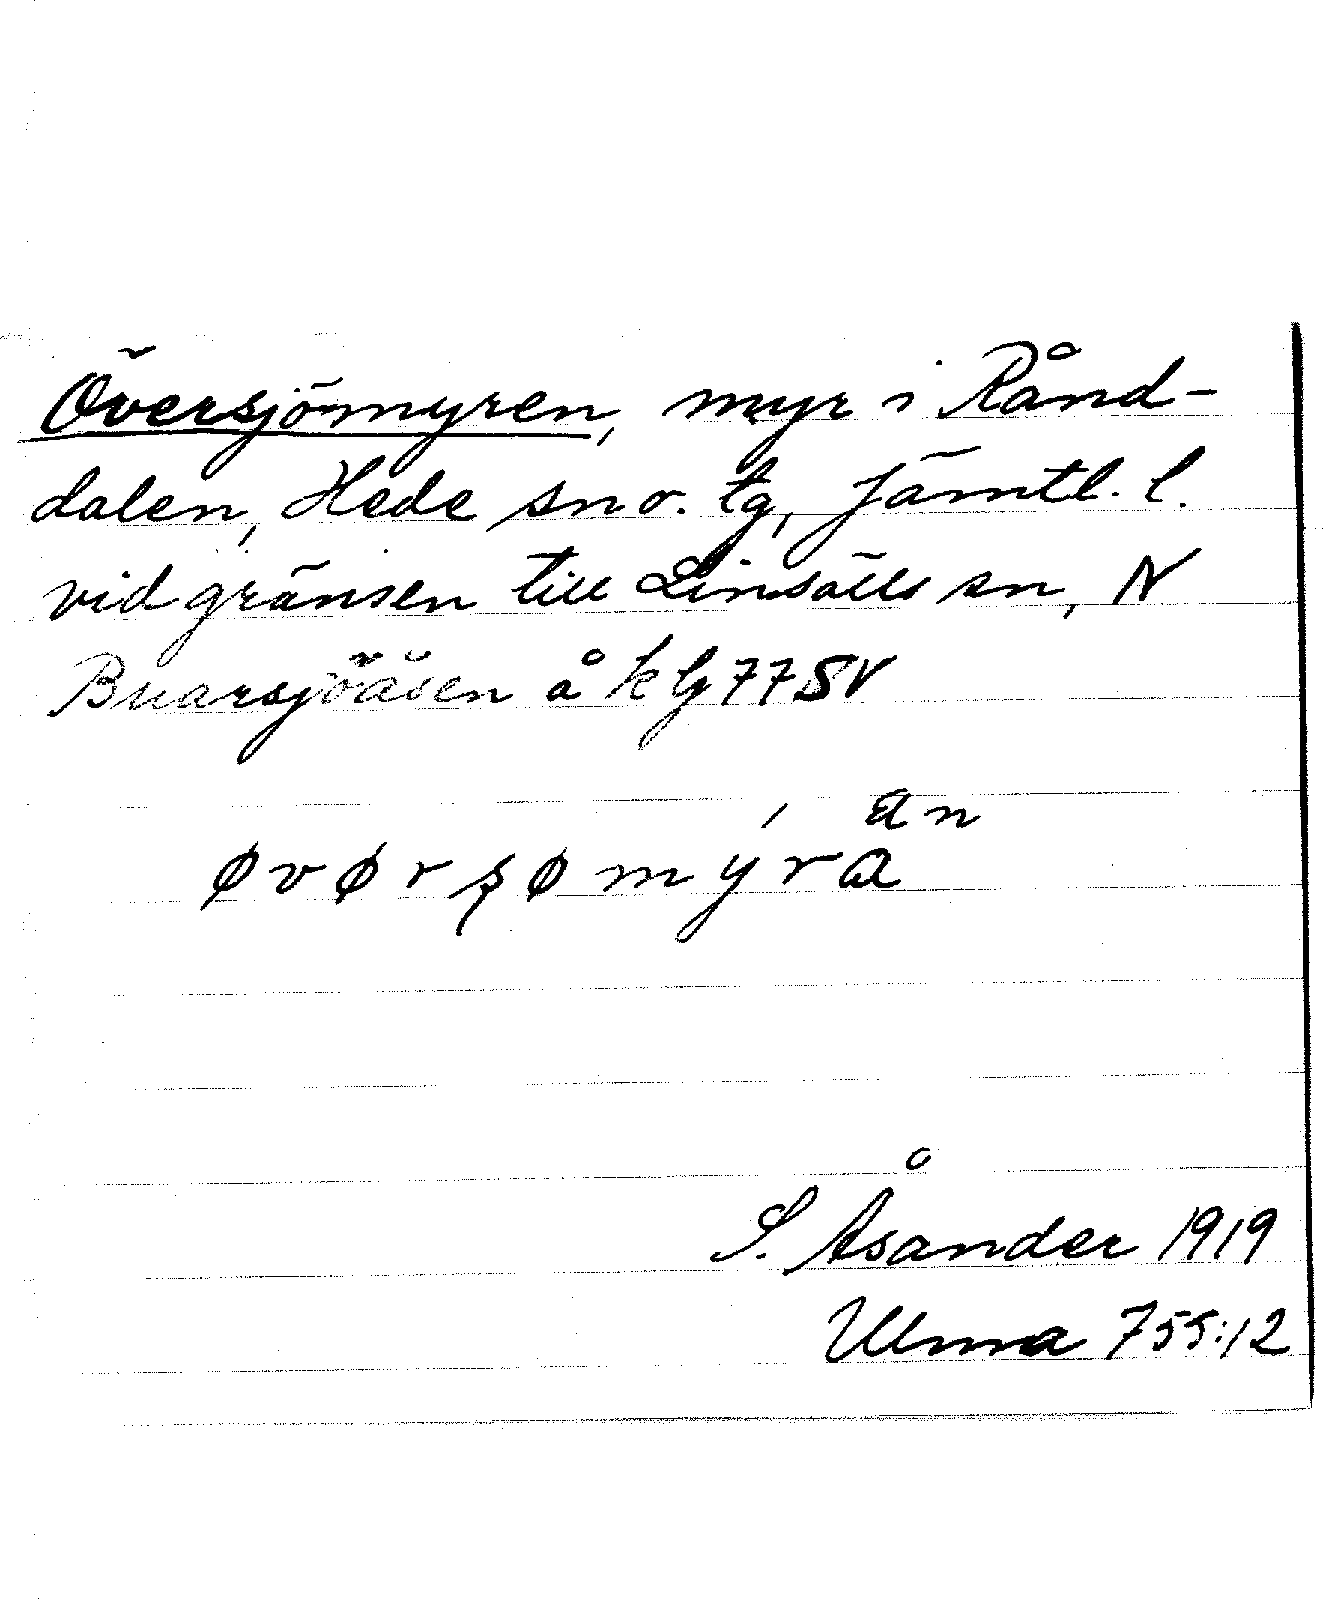 Översjömyren, myr i Rånd-
dalen, Hede sn o. tg, Jämtl. l.
vid gränsen till Linsälls sn, N
Buarsjöåsen å kbl 77 SV
an
øvørʂømýra
S. Åsander 1919
Ulma 755:12